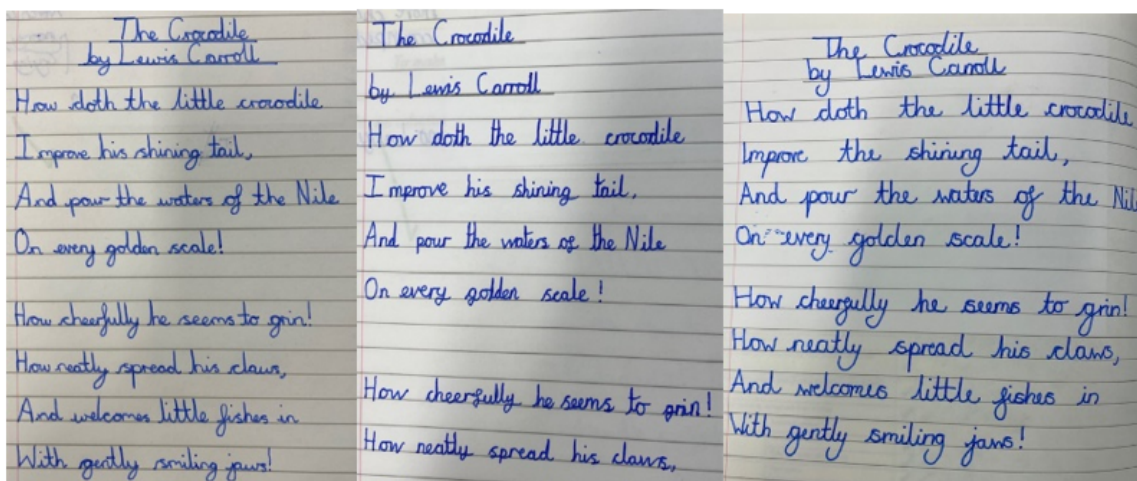 The Crocodile
by Lewis Carroll
How doth the little crocodile
Improve his shining tail,
And pour the waters of the Nile
On every golden scale!
How cheerfully he seems to grin!
How neatly spread his claws,
And welcomes little fishes in
With gently smiling jaws!
The Crocodile
by Lewis Carroll
How doth the little crocodile
Improve his shining tail,
And pour the waters of the Nile
On every golden scale!
How cheerfully he seems to grin!
How neatly spread his claws,
The Crocodile
by Lewis Carroll
How doth the little crocodile
Improve the shining tail,
And pour the waters of the Nil
On every golden scale!
How cheerfully he seems to grin!
How neatly spread his claws,
And welcomes little fishes in
With gently smiling jaws!